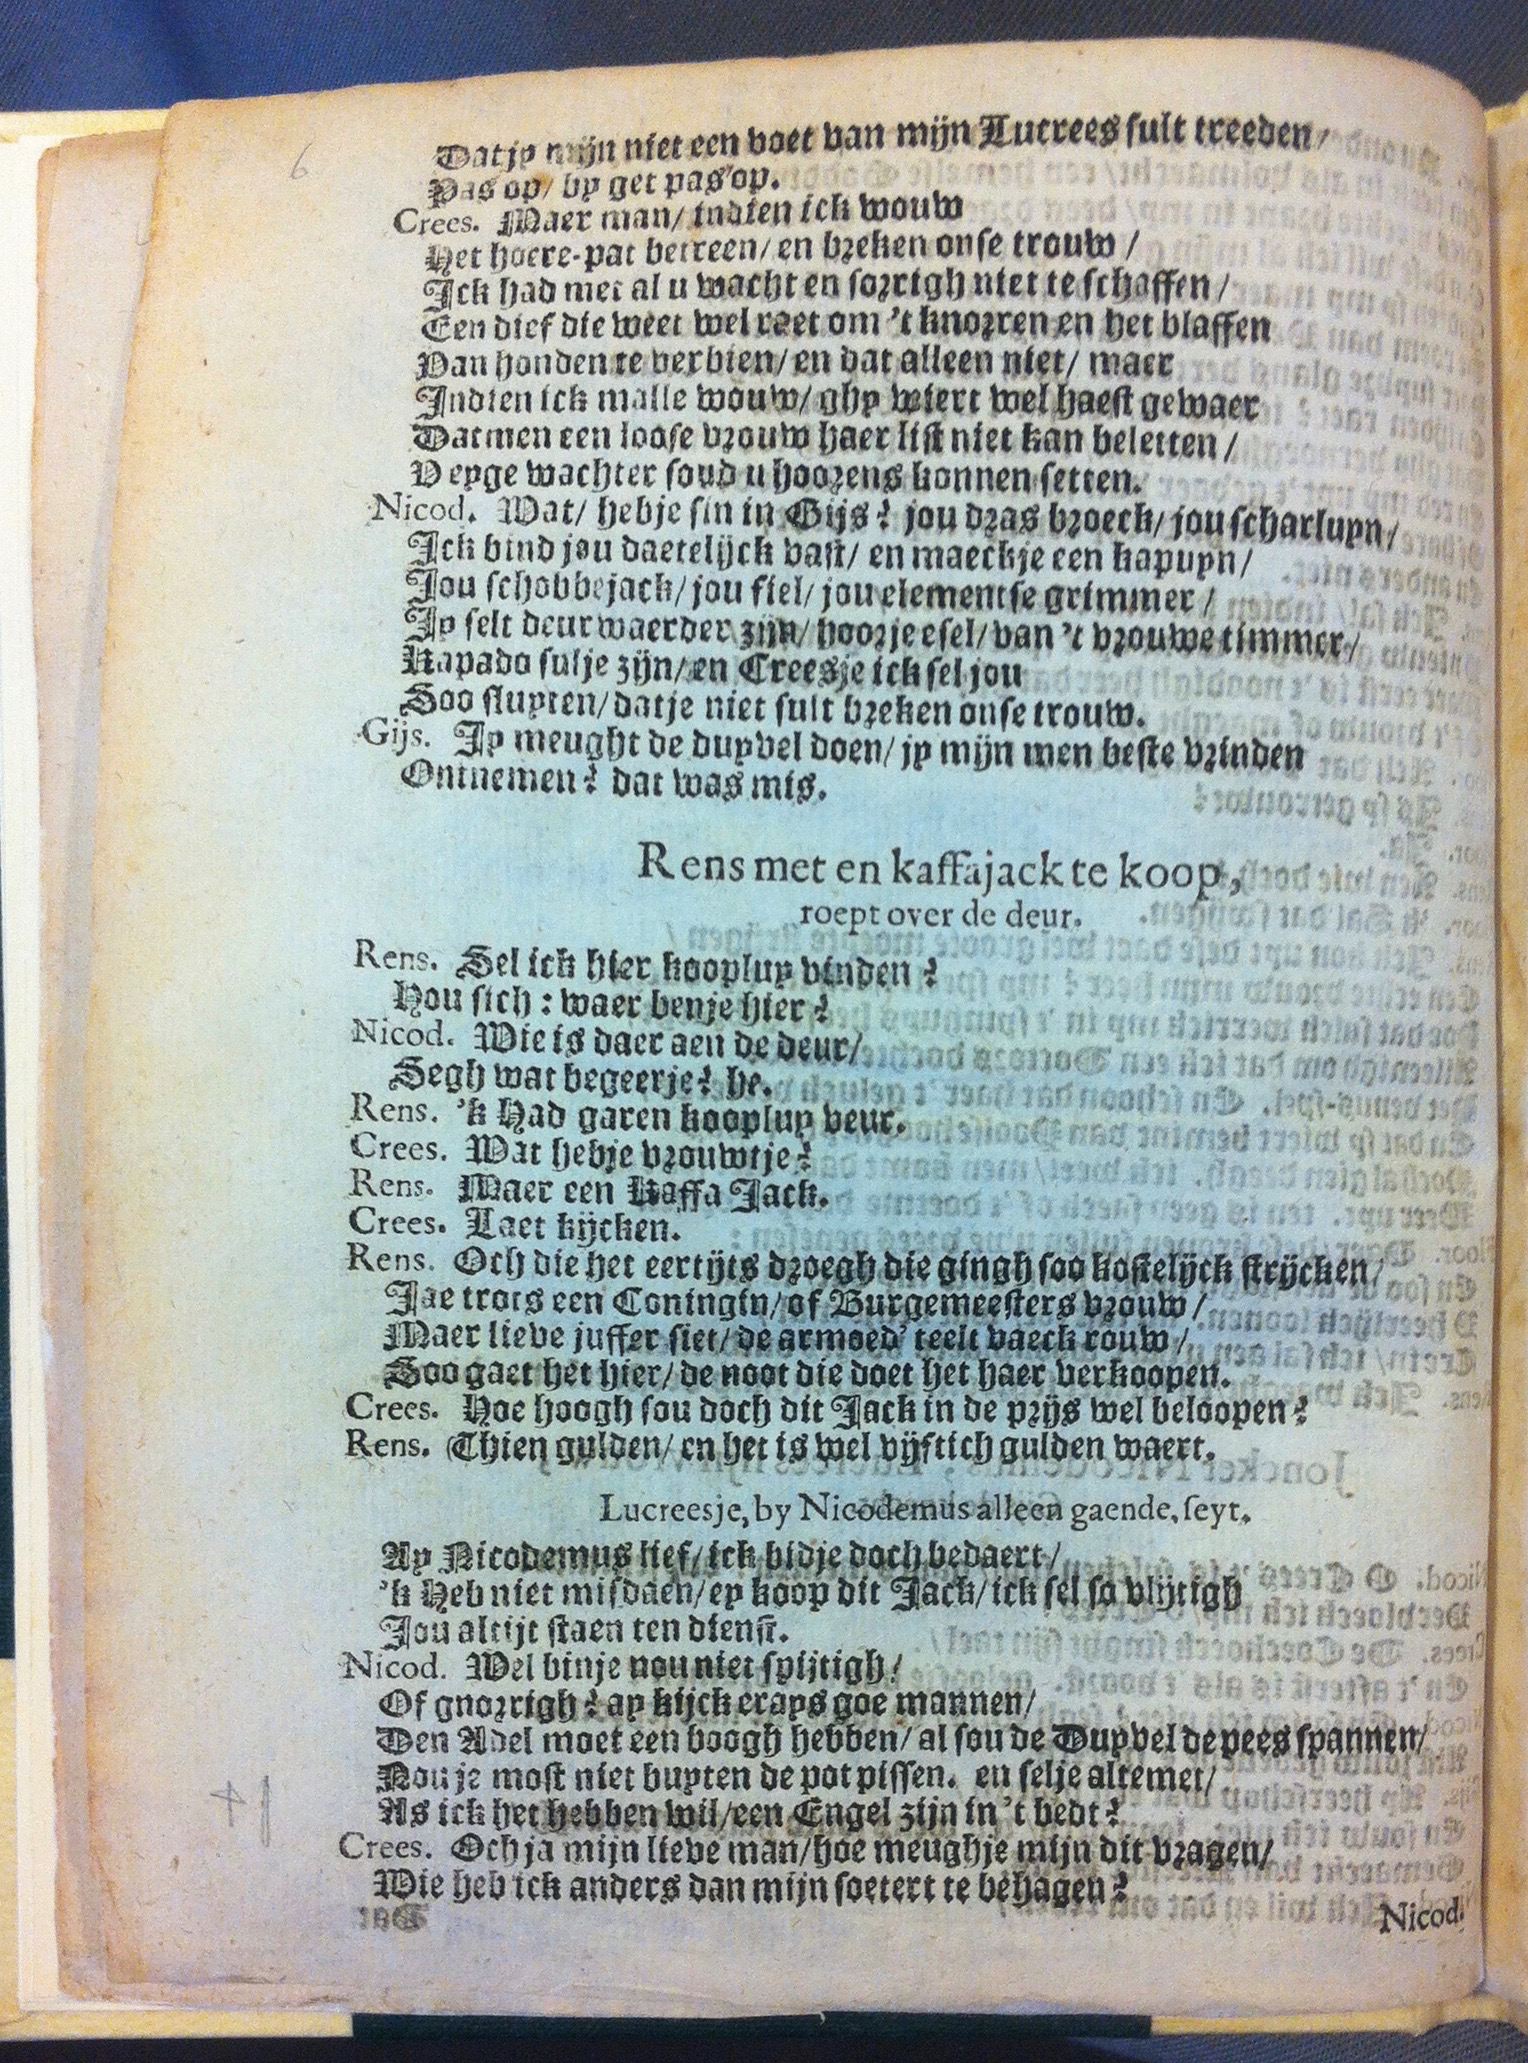 6
Dat jy mijn niet een voet van mijn Lucrees sult treeden/
Pas op/ by get pas op.
Crees. Maer man/ indien ick wouw
Het hoere-pat betreen/ en breken onse trouw/
Ick had met al u wacht en sorrigh niet te schaffen/
Een dief die weet wel raet om 't knorren en het blaffen
Van honden te verbien/ en dat alleen niet/ maer
Indien ick malle wouw/ ghy wiert wel haest gewaer
Datmen een loose vrouw haer list niet kan beletten/
U eyge wachter soud u hoorens konnen setten.
Nicod. Wat/ hebje sin in Gijs? jou dras broeck/ jou scharluyn/
Ick bind jou daetelijck vast/ en maeckje een kapuyn/
Jou schobbejack/ jou fiel/ jou elementse grimmer/
Jy selt deurwaerder zijn/ hoorje esel/ van 't vrouwe timmer/
Kapado sulje zijn/ en Creesje ick sel jou
Soo sluyten/ datje niet sult breken onse trouw.
Gijs. Jy meught de duyvel doen/ jy mijn men beste vrinden
Ontnemen? dat was mis.
Rens met en kaffajack te koop,
roept over de deur.
Rens. Sel ick hier kooplup vinden?
Hou sich: waer benje hier?
Nicod. Wie is daer aen de deur/
Segh wat begeerje? he.
Rens. 'k Had garen kooplup veur.
Crees. Wat hebje vrouwtje?
Rens. Maer een Kaffa Jack.
Crees. Laet kijcken.
Rens. Och die het eertijts droegh die gingh soo kostelijck strijcken/
Jae trots een Coningin/ of Burgemeesters vrouw/
Maer lieve juffer siet/ de armoed' teelt vaeck rouw/
Soo gaet het hier/ de noot die doet het haer verkoopen.
Crees. Hoe hoogh sou doch dit Jack in de prijs wel beloopen?
Rens. Thien gulden/ en het is wel vijftich gulden waert.
Lucreesje, by Nicodemus alleen gaende, seyt.
Ay Nicodemus lief/ ick bidje doch bedaert/
'k Heb niet misdaen/ ey koop dit Jack/ ick sel so vlijtigh
Jou altijt staen ten dienst.
Nicod. Wel binje nou niet spijtigh/
Of gnorrigh? ay kijck erays goe mannen/
Den Adel moet een boogh hebben/ al sou de Duyvel de pees spannen/
Nou je most niet buyten de pot pissen. en selje altemet/
As ick het hebben wil/ een Engel zijn in 't bedt?
Crees. Och ja mijn lieve man/ hoe meughje mijn dit vragen/
Wie heb ick anders dan mijn soetert te behagen?
Nicod.